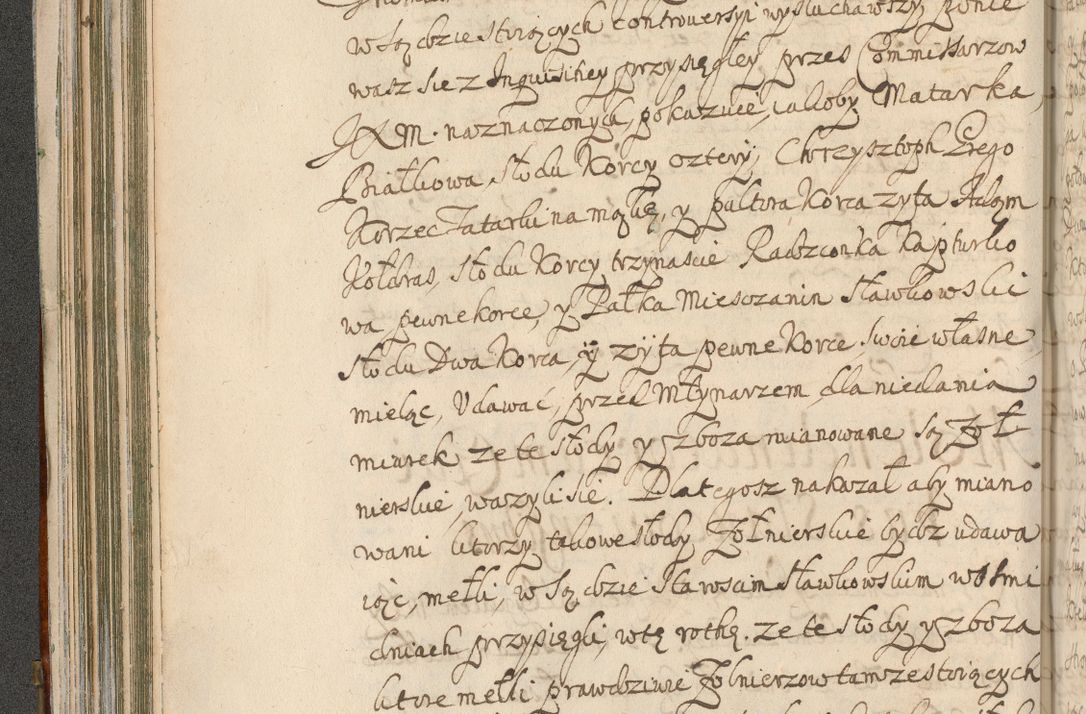 w Sądzie stoiących controwersyi wysłuchawszy, ponie
wasz sie z Inquisitiey przysięgłey przes Commissarzow
JKM. naznaczonych, pokazuie, iakoby Matarka
Białkowa, słodu Korcy cztery, Chrzysztoph
Korzec Tatarki na mąkę, y pultora Korca zyta Adam
Kołdras, słodu Korcy trzynascie Radzconka Kapturko
wa pewne korce, y Pałka Miesczanin Sławkowski
słodu Dwa Korca, y zyta pewne Korce, swoie własne
mieląc, Udawać, przed Młynarzem dla niedania
miarek ze te słody y zboza mianowane są Zoł
nierskie, wazyli sie. Dlategosz nakazał aby miano
wani ktorzy takowe słody Zołnierskie bydz udawa
iąc, mełli, w Sądzie Staroscim Sławkowskim w osmi
dniach przysięgli, w tę rothę. ze te słody y zboza
ktore mełli prawdziwie Zolnierzow tam ze stoiących